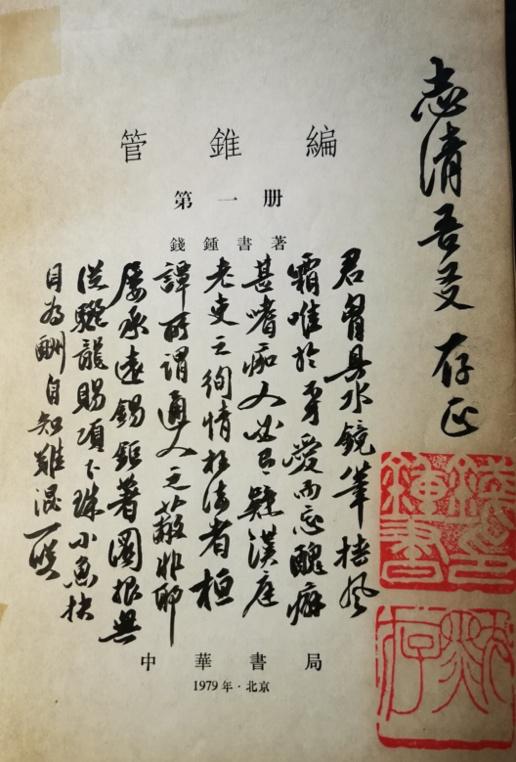 志清吾友存正
管錐編
第一册
錢鍾書著
君胷具水鏡筆挾風
霜唯於弟愛而忘醜癖
甚嗜痂人必疑漢庭
老吏之徇情枉法者桓
譚所謂通人之蔽非耶
屢承遠錫鉅著圖報無
從驪龍賜項下珠小魚抉
目為酬自知難混一噱
鍾書
默存
中華書局
1979年·北京